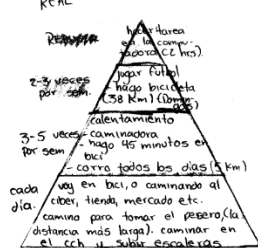 REAL
hacer tarea
en la compu-
tadora (2 hrs).
2-3 veces
por sem.
jugar futbol
- hago bicicleta
(38 Km) (Domin-
gos)
calentamiento
3-5 veces
por sem
- caminadora
- hago 45 minutos en
bici
- corro todos los dias (5 Km)
cada
día.
voy en bici, o caminando al
ciber, tienda, mercado etc.
camino para tomar el pesero, (la
distancia más larga). caminar en
el cch y subir escaleras